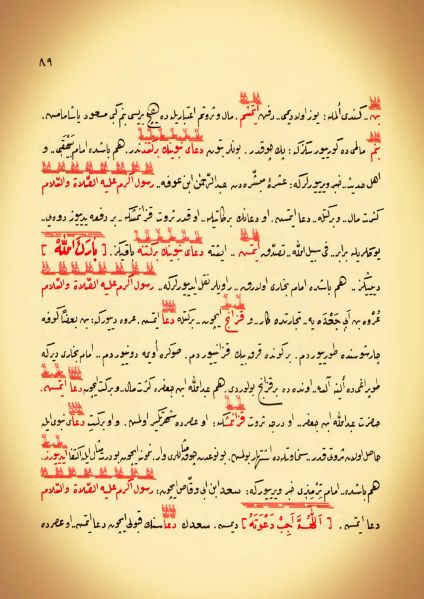 ٨٩
بن - كندى ألمله: يوز اولادمى - دفن ايتمشم. مال و ثروتم اعتباريله ده هيچ بريسى بنم كبى مسعود ياشامامش.
بنم مالمى ده كورييورسكز كه: پك چوقدر. بونلر بتون دعاى نبوينك بركتندندر. هم باشده امام بيهقى و
اهل حديث - خبر ويريورلر كه: عشرۀ مبشره دن عبدالرحمن ابن عوفه، رسول اكرم عليه الصلاة والسلام
كثرت مال - و بركتله - دعا ايتمش. او دعانك بركاتيله - او قدر ثروت قزانمشكه - بر دفعه يدييوز دوه يى -
يوكلريله برابر - فى سبيل الله - تصدق ايتمش - ايشته دعاى نبوينك بركتنه باقيكز. [ بَارَكَ اللّٰهُ ]
دييكز - هم باشده امام بخارى اولارق - راويلر نقل ايدييورلر كه: رسول اكرم عليه الصلاة والسلام
عروه بن ابى جعده يه - تجارتده كار - و قزانج ايچون - بركتله دعا ايتمش. عروه دييور كه: بن بعضًا كوفه
چارشوسنده طورييوردم. بر كونده قرق بيك قزانييوردم. صوكره اويمه دونييوردم - امام بخارى دير كه
طوپراغى ده الينه آلسه، اونده ده بر قزانج بولوردى. هم عبدالله ابن جعفره كثرت مال - و بركت ايچون دعا ايتمش.
حضرت عبدالله ابن جعفر - او درجه ثروت قزانمشكه: او عصرده شهرتگير اولمش. و او بركت دعاى نبوى ايله
حاصل اولان ثروتى قدر - سخاوتله ده اشتهار بولمش. بو نوعدن چوق مثاللرى وار. نمونه ايچون بو درت مثال ايله اكتفا ايدييورز.
هم باشده - امام ترمذى خبر ويرييور كه: سعد ابن ابى وقاص ايچون: رسول اكرم عليه الصلاة والسلام
دعا ايتمش. [ اَللّٰهُمَّ اَجِبْ دَعْوَتَهُ ] ديمش. سعدك دعاسنك قبولى ايچون دعا ايتمش - او عصرده